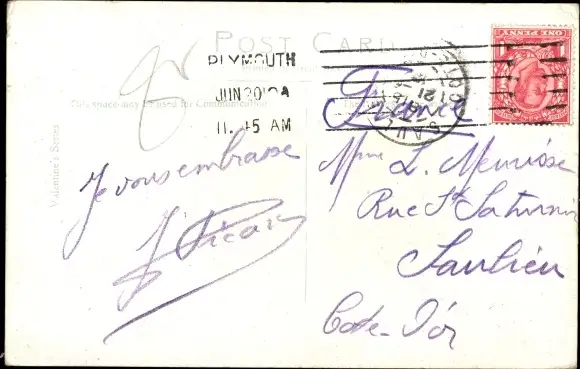 POST CARD
PLYMOUTH
JUN 20
11.45 AM
This space may be used for Communication
Valentine's Series
ONE PENNY
SAULIEU
21
France
Je vous embrasse
Mme L.
Rue St Saturnin
Saulieu
Cote-D'or